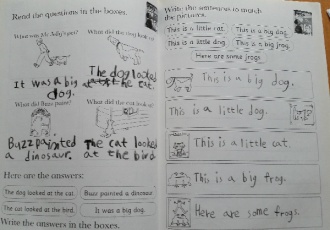 Read the questions in the boxes.
What was Mr Big's pet?
What did the dog look at?
It was a big
dog.
The dog looked
at the cat.
What did Buzz paint?
What did the cat look at?
Buzz painted
a dinosaur.
The cat looked
at the bird
Here are the answers:
The dog looked at the cat.
Buzz painted a dinosaur
The cat looked at the bird.
It was a big dog.
Write the answers in the boxes.
Write the sentences to match
the pictures.
This is a little cat.
This is a big dog.
This is a little dog.
This is a big frog.
Here are some frogs.
This is a big dog.
This is a little dog.
This is a little cat.
This is a big frog.
Here are some frogs.